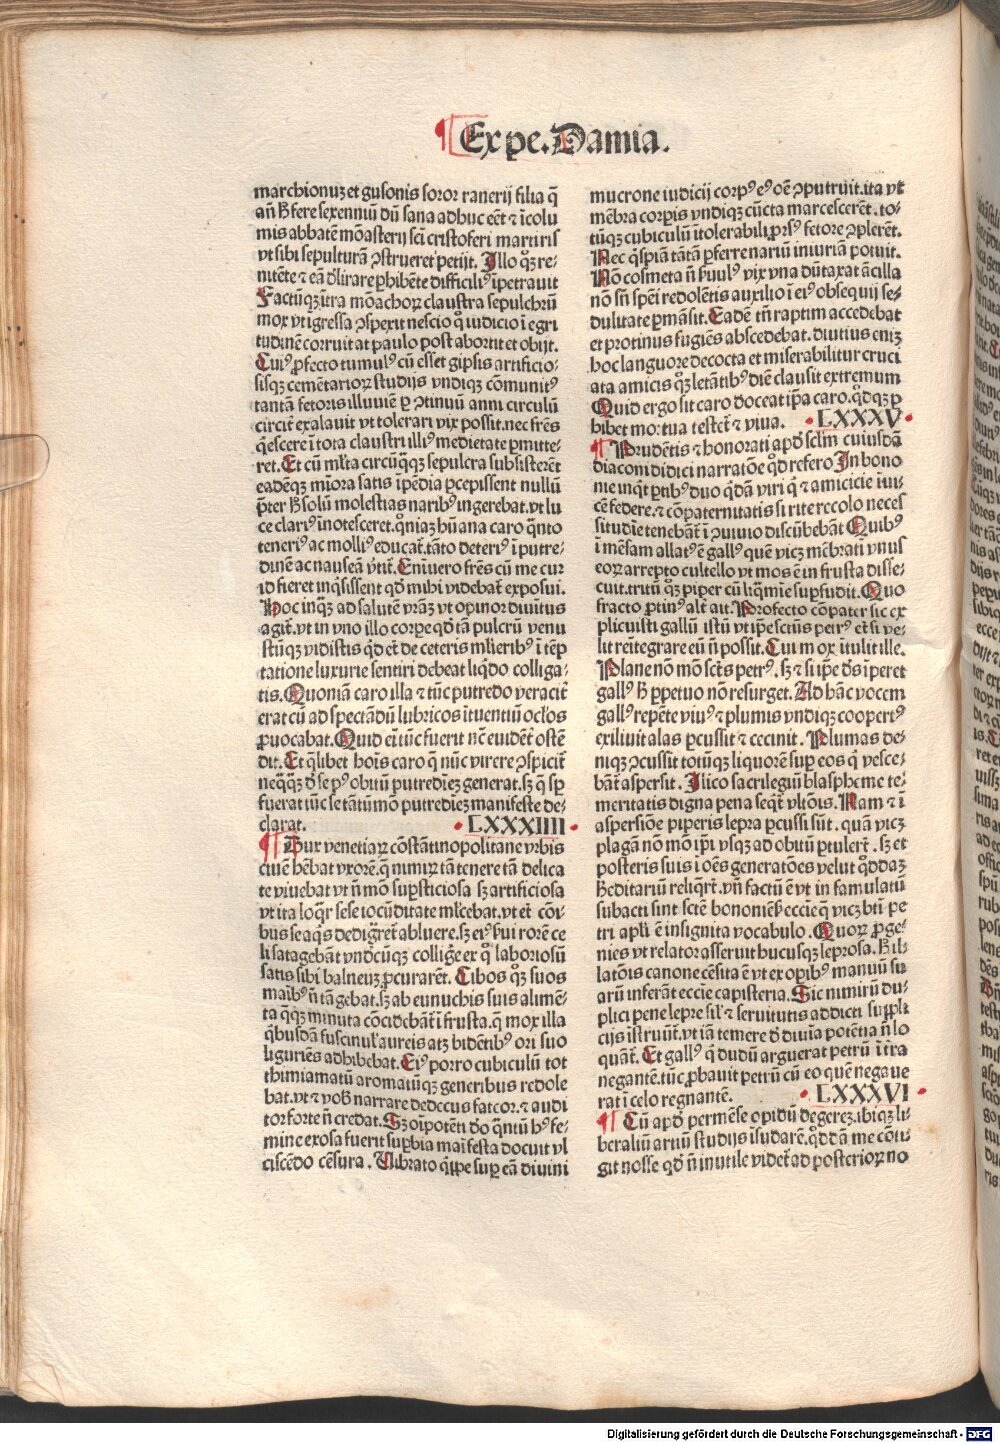 Ex pe. Damia.
marchionuz et guſonis ſoror ranerij filia q̄
añ h̄ fere ſexenniū dū ſana adhuc eēt ⁊ īcolu
mis abbatē mōaſterij ſcī criſtoferi martiris
vt ſibi ſepulturā ↄſtrueret petijt. Illo qꝫ re⸗
nitēte ⁊ eā d̓lirare ꝑhibēte difficiliꝰ īpetrauit
Factūqꝫ ītra mōachoꝝ clauſtra ſepulchrū
mox vt īgreſſa ↄſpexit neſcio qͦ iudicio ī egri
tudinē corruit at paulo poſt abortit et obijt.
Cuiꝰ ꝓfecto tumulꝰ cū eſſet gipſis artificio⸗
ſiſqꝫ cemētarioꝝ ſtudijs vndiqꝫ cōmunitꝰ
tantā fetoris illuuiē ꝑ ↄtinuū anni circulū
circūt̄ exalauit vt tolerari vix poſſit. nec frēs
q̄eſcere ī tota clauſtri illiꝰ medietate ꝑmitte⸗
ret. Et cū ml̄ta circūq̄qꝫ ſepulcra ſubſiſterēt
eadēqꝫ mīora ſatis īpēdia ꝑcepiſſent nullū
p̄ter h̄ ſolū moleſtias naribꝰ ingerebat. vt lu
ce clariꝰ īnoteſceret. qm̄iaꝫ hūana caro q̄nto
teneriꝰ ac molliꝰ educat̄. tāto deteriꝰ ī putre⸗
dinē ac nauſeā v̄tit̄. Eniuero frēs cū me cur
id fieret īnq̄ſiſſent qd̓ mihi videbat̄ expoſui.
Hoc inq̄ꝫ ad ſalutē vr̄aꝫ vt opinor diuītus
agit̄. vt in vno illo corpe qd̓ tā pulcrū venu
ſtūqꝫ vidiſtis qd̓ et̄ de ceteris ml̄ieribꝰ ī tēp
tatione luxurie ſentiri debeat liq̄do colliga⸗
tis. Quoniā caro illa ⁊ tūc putredo veracit̄
erat cū ad ſpectādū lubricos ītuentiū ocl̓os
ꝓuocabat. Quid eī tūc fuerit nc̄ euidēt̄ oſtē
dit. Et q̄libet hoīs caro q̄ nūc virere ↄſpicit̄
neq̄qꝫ d̓ ſe pꝰ obitū putredieꝫ generat. ſꝫ q̄ ſꝑ
fuerat tūc ſe tātūmō putredieꝫ manifeſte de⸗
clarat. LXXXIIII
Dux venetiaꝝ cōſtātinopolitane vrbis
ciuē hēbat vxorē. q̄ nimiꝝ tā tenere tā delica
te viuebat vt n̄ mō ſuꝑſticioſa ſꝫ artificioſa
vt ita loq̄r ſeſe iocūditate ml̄cebat. vt et̄ cōi⸗
bus ſe aq̄s dedigr̄et̄ abluere. ſꝫ eiꝰ ẜui rorē ce
li ſatagebāt vndcūqꝫ collig̓e ex qͦ laborioſū
ſatis ſibi balneuꝫ ꝓcurarēt. Cibos qꝫ ſuos
maībꝰ n̄ tāgebat. ſꝫ ab eunuchis ſuis alimē⸗
ta q̄qꝫ minuta cōcidebāt̄ ī fruſta. q̄ mox illa
qͥbuſdā fuſcinul̓ aureis atqꝫ bidētibꝰ ori ſuo
liguriēs adhibebat. Eiꝰ porro cubiculū tot
thimiamatū aromatūqꝫ generibus redole
bat. vt ⁊ vob̄ narrare dedecus fateor. ⁊ audi
tor forte n̄ credat. Sꝫ oīpotēti do q̄ntū hꝰ fe⸗
mine exoſa fuerit ſuꝑbia maīfeſta docuit vl
ciſcēdo cēſura. Uibrato qͥppe ſuꝑ eā diuini
mucrone iudicij corpꝰ eꝰ oē ↄputruit. ita vt
mēbra corꝑis vndiqꝫ cūcta marceſcerēt. to⸗
tūqꝫ cubiculū ītolerabili ꝓrſꝰ fetore ↄplerēt.
Nec q̄ſpiā tātā ꝑferre nariū iniuriā potuit.
Nō coſmeta n̄ ẜuulꝰ vix vna dūtaxat ācilla
nō ſn̄ ſpēi redolētis auxilio ī eiꝰ obſequij ſe⸗
dulitate ꝑmāſit. Eadē tn̄ raptim accedebat
et protinus fugiēs abſcedebat. diutius eniꝫ
hoc languore decocta et miſerabilitur cruci
ata amicis qꝫ letātibꝰ diē clauſit extremum
Quid ergo ſit caro doceat ip̄a caro. qd̓qꝫ ꝑ
hibet mortua teſtet̄ ⁊ viua. LXXXV
Prudētis ⁊ honorati apd̓ ſclm̄ cuiuſdā
diaconi didici narratōne qd̓ refero In bono
nie inqͥt ꝑtibꝰ duo qͥdā viri qͥ ⁊ amicicie iūi⸗
cē federe. ⁊ cōpaternitatis ſi rite recolo neceſ
ſitudīe tenebāt̄ ī ↄuiuio diſcūbebāt Quibꝰ
ī mēſam allatꝰ ē gallꝰ quē vicꝫ mēbrati vnus
eoꝝ arrepto cultello vt mos ē in fruſta diſſe⸗
cuit. tritū qꝫ piper cū liq̄mīe ſuꝑfudit. Quo
facto ꝓtinꝰ alt̄ ait. Profecto cōpater ſic ex
plicuiſti gallū iſtū vt ip̄e ſcīus petrꝰ et̄ ſi ve⸗
lit reītegrare eū n̄ poſſit. Cui mox ītulit ille.
Plane nō mō ſctꝰ petrꝰ. ſꝫ ⁊ ſi ip̄e dn̄s īperet
gallꝰ h̄ ꝑpetuo nō reſurget. Ad hāc vocem
gallꝰ repēte viuꝰ ⁊ plumis vndiqꝫ coopertꝰ
exiliuit alas ꝑcuſſit ⁊ cecinit. Plumas de⸗
niqꝫ ↄcuſſit totūqꝫ liquorē ſuꝑ eos qͥ veſce⸗
bāt̄ aſperſit. Ilico ſacrilegiū blaſpheme te⸗
meritatis digna pena ſeq̄t̄ vltōis. Nam ⁊ ī
aſperſiōe piperis lepra ꝑcuſſi ſūt. quā vicꝫ
plagā nō mō ip̄i vſqꝫ ad obitū ꝑtulerūt. ſꝫ et
poſteris ſuis ī oēs generatōes velut qͦddaꝫ
h̓editariū reliq̄rt̄. vn̄ factū ē vt in famulatū
ſubacti ſint ſctē bononienẜ ecc̄ie q̄ vicꝫ bt̄i pe
tri apl̓i ē inſignita vocabulo. Quoꝝ ꝓge⸗
nies vt relator aſſeruit hucuſqꝫ leproſa. h̄ il⸗
latōis canone cēſita ē vt ex oꝑibꝰ manuū ſu
arū inferāt ecc̄ie capiſteria. Sic nimirū du⸗
plici pene lepre ſil̓ ⁊ ſeruitutis addicti ſuppli
cijs īſtruūt̄. vt iā temere d̓ diuīa potētia n̄ lo
quāt̄. Et gallꝰ qͥ dudū arguerat petrū ī t̄ra
negantē. tūc ꝓbauit petrū cū eo quē negaue
rat ī celo regnantē. LXXXVI
Cū apd̓ permēſe opidū deg̓erēꝫ. ibiqꝫ li⸗
beraliū artiū ſtudijs īſudarē. qd̓dā me cōti⸗
git noſſe qd̓ n̄ inutile videt̄ ad poſterioꝝ no
Digitalisierung gefördert durch die Deutsche Forschungsgemeinschaft - DFG